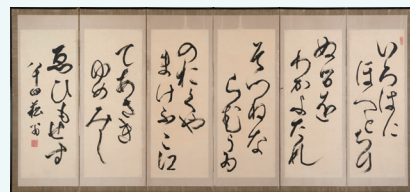 いろはに
ほへとちり
ぬるを
わかよたれ
そつねな
らむうゐ
のおくや
まけふこ江
てあさき
ゆめみし
ゑひもせす